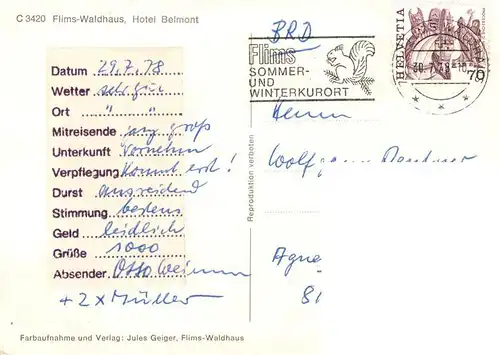 C 3420 Flims-Waldhaus, Hotel Belmont
Datum 29.7.78
Wetter sehr gut
Ort " "
Mitreisende groß
Unterkunft Vornehm
Verpflegung Kommt erst!
Durst ausreichend
Stimmung bestens
Geld leidlich
Grüße 1000
Absender Otto
+ 2 x Müller
Farbaufnahme und Verlag: Jules Geiger, Flims-Waldhaus
Reproduktion verboten
BRD
Flims
SOMMER-
UND
WINTERKURORT
HELVETIA
70
Herrn
Wolfgang
Agne
81